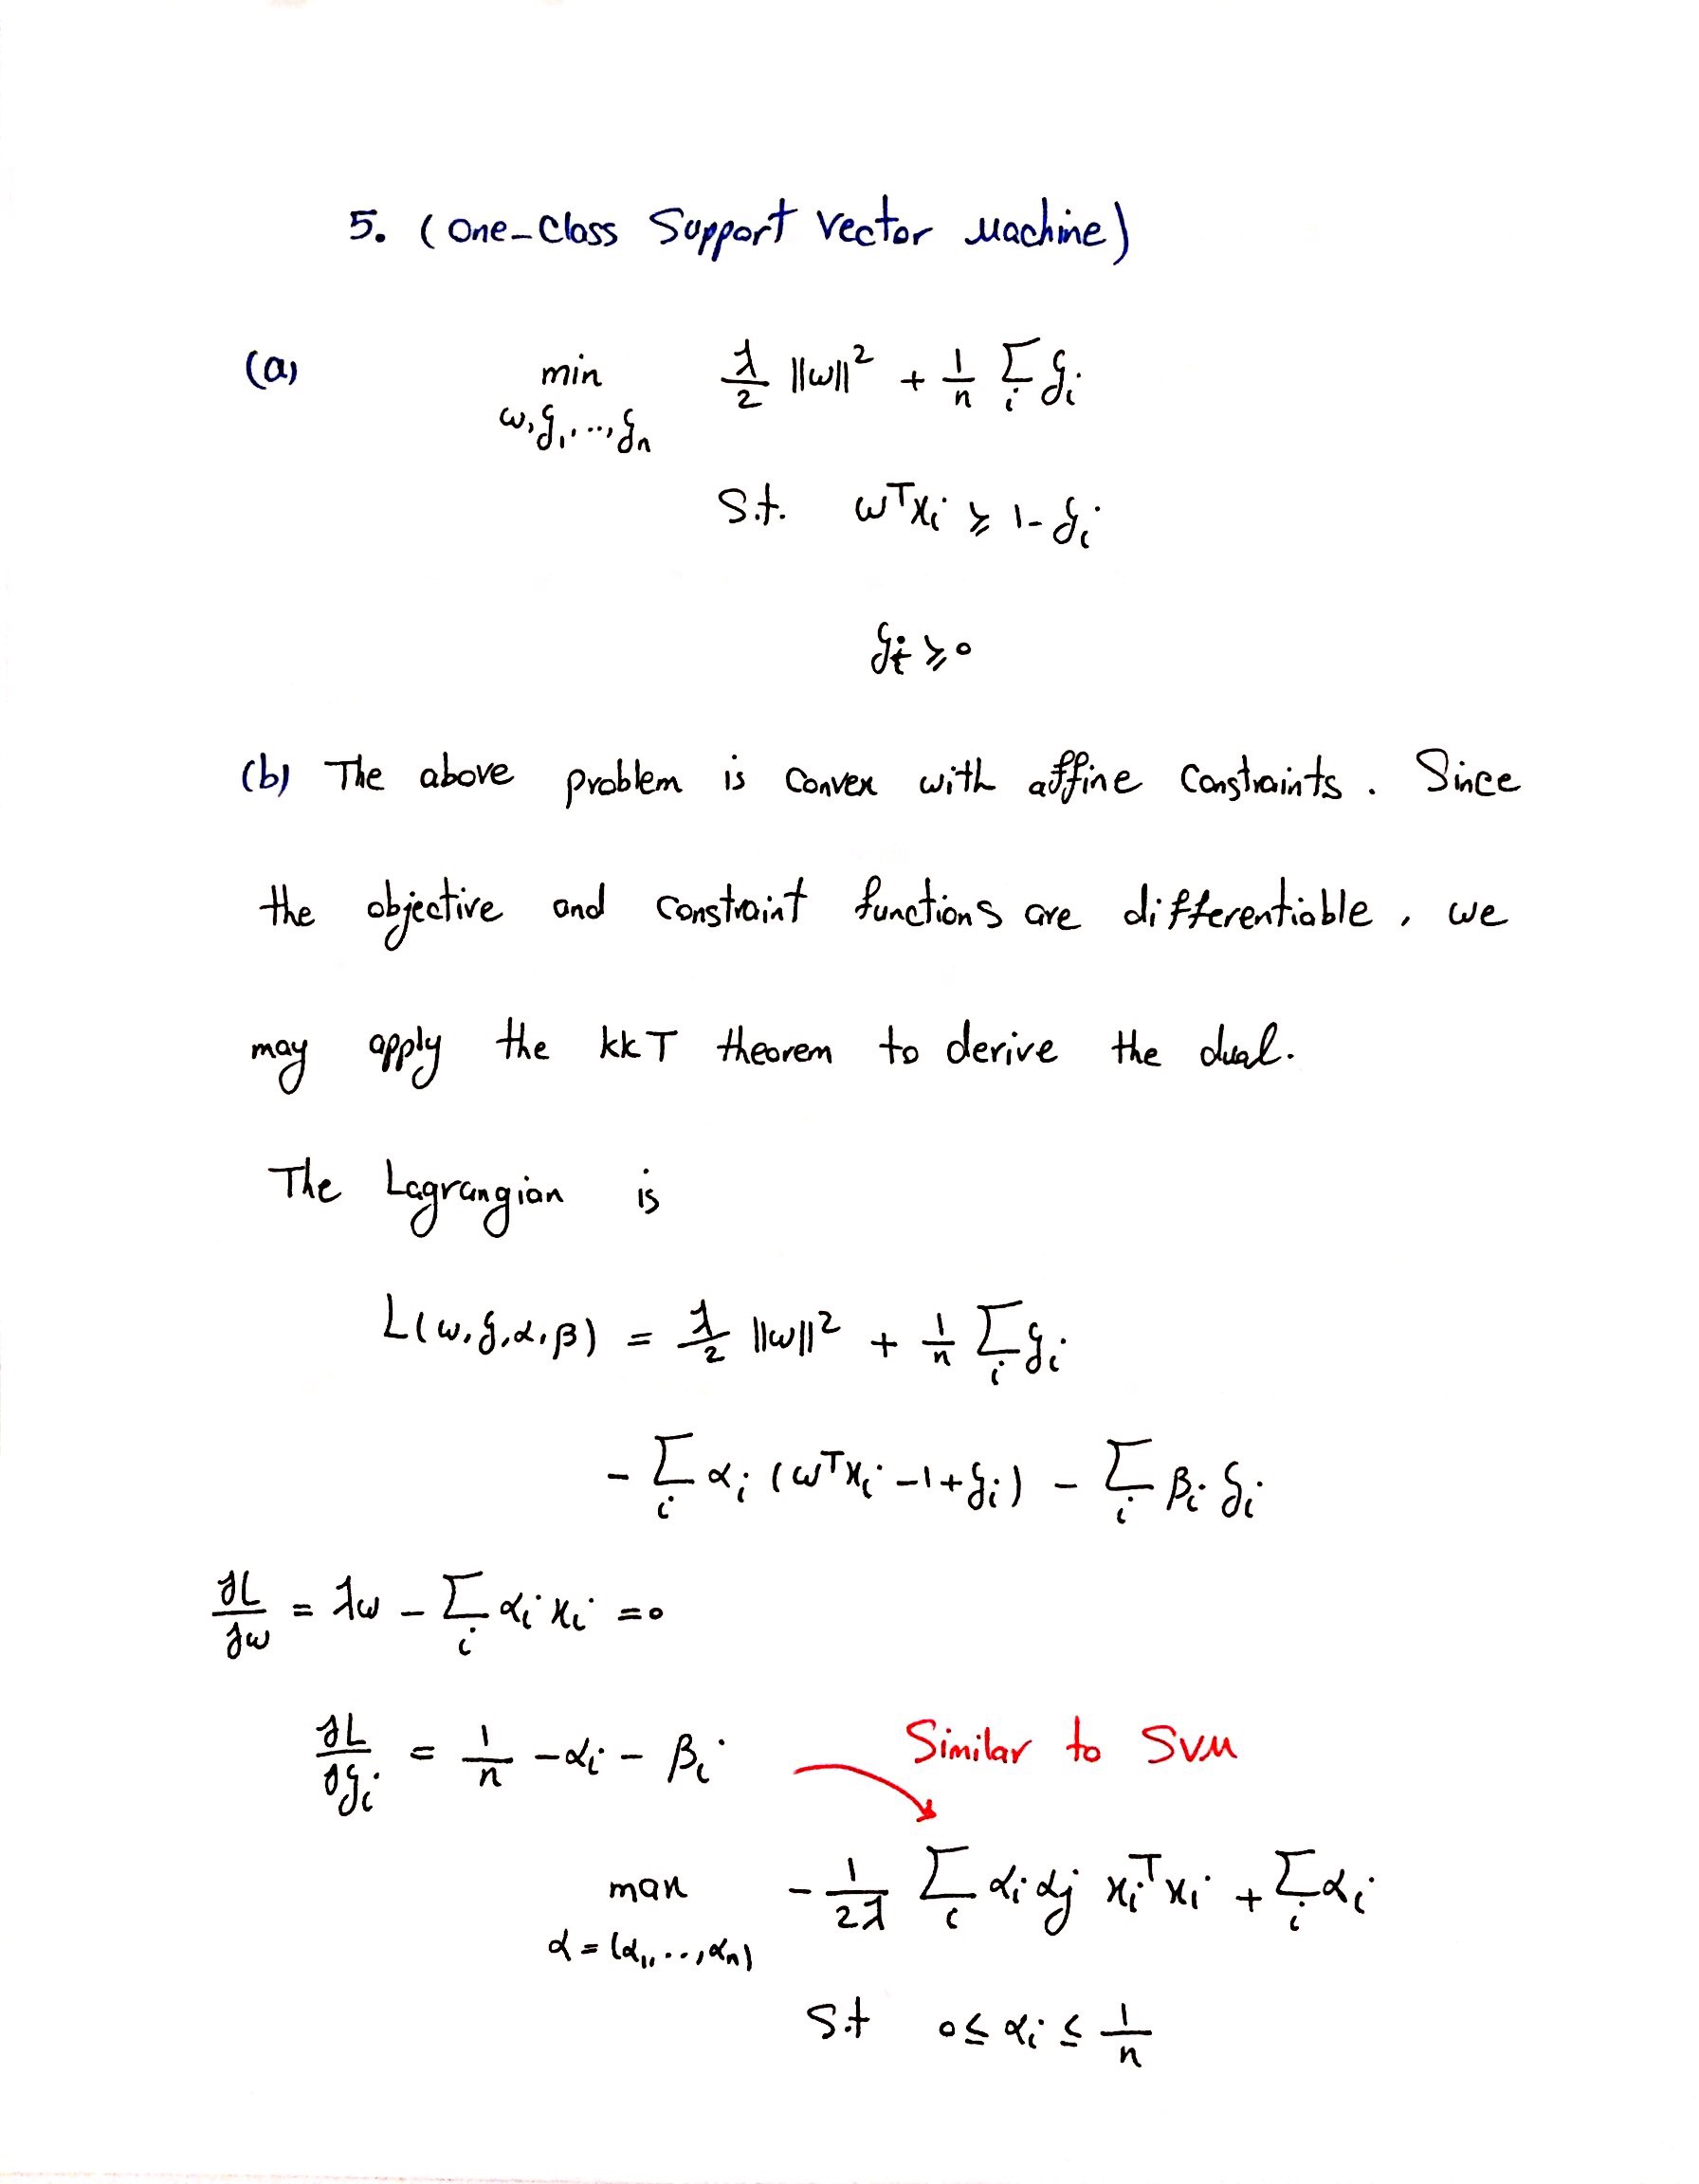 5. (One-Class Support Vector Machine)
(a) min λ/2 ||w||² + 1/n Σ_i ξ_i
w, ξ_1, ..., ξ_n
S.t. wᵀx_i ≥ 1 - ξ_i
ξ_i ≥ 0
(b) The above problem is convex with affine constraints. Since
the objective and constraint functions are differentiable, we
may apply the KKT theorem to derive the dual.
The Lagrangian is
L(w, ξ, α, β) = λ/2 ||w||² + 1/n Σ_i ξ_i
- Σ_i α_i (wᵀx_i - 1 + ξ_i) - Σ_i β_i ξ_i
∂L/∂w = λw - Σ_i α_i x_i = 0
∂L/∂ξ_i = 1/n - α_i - β_i
Similar to SVM
max -1/2λ Σ_i α_i α_j x_iᵀx_i + Σ_i α_i
α = (α_1, ..., α_n)
S.t 0 ≤ α_i ≤ 1/n